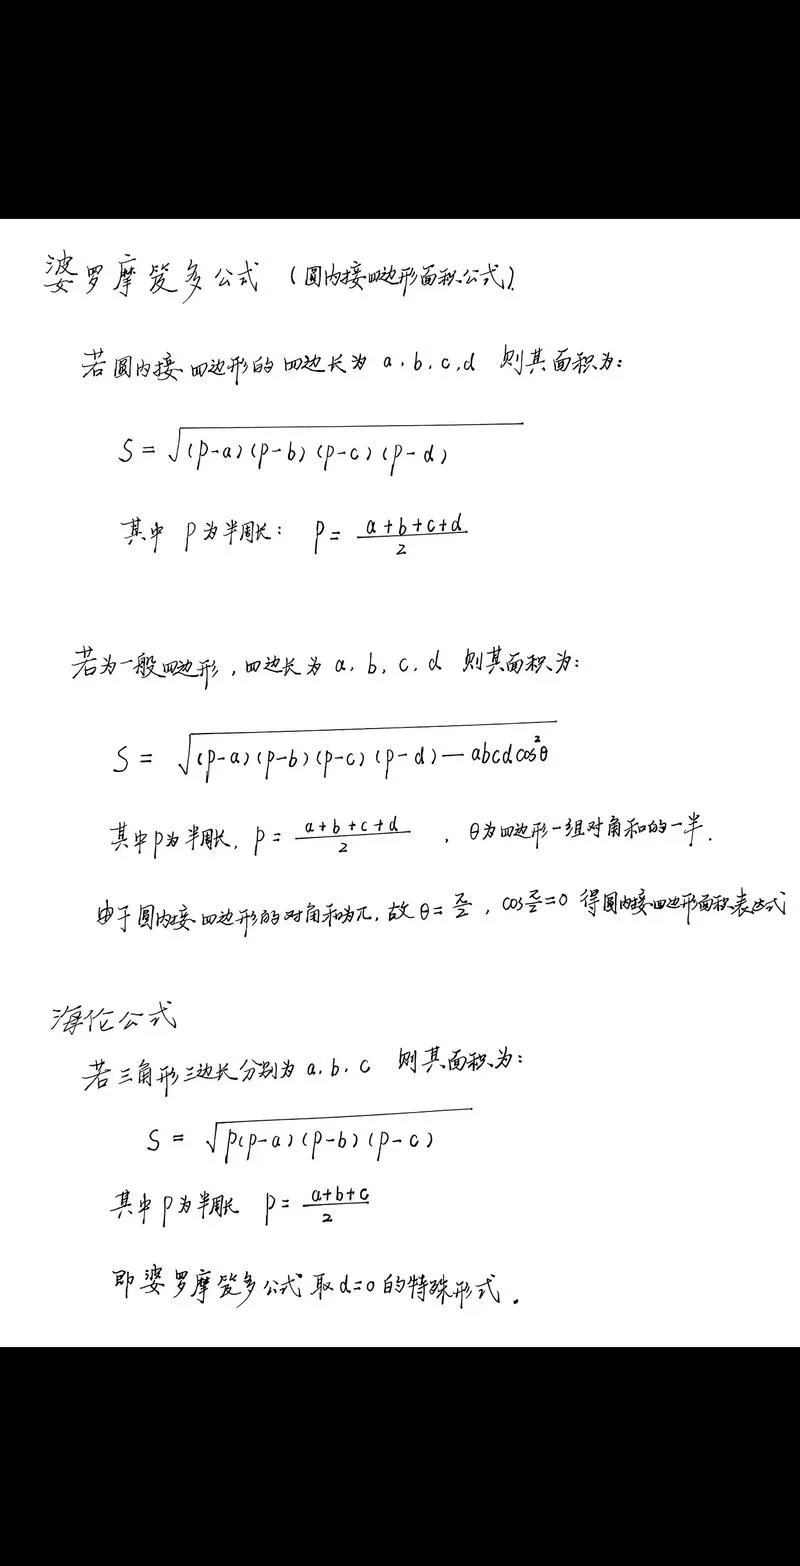 婆罗摩笈多公式 (圆内接四边形面积公式).
若圆内接四边形的四边长为 a, b, c, d 则其面积为:
S = √(p-a)(p-b)(p-c)(p-d)
其中 p为半周长: p = (a+b+c+d)/2
若为一般四边形, 四边长为 a, b, c, d 则其面积为:
S = √(p-a)(p-b)(p-c)(p-d) — abcdcos²θ
其中p为半周长, p = (a+b+c+d)/2 , θ为四边形一组对角和的一半.
由于圆内接四边形的对角和为π, 故 θ = π/2 , cosπ/2 = 0 得圆内接四边形面积表达式
海伦公式
若三角形三边长分别为 a, b, c 则其面积为:
S = √p(p-a)(p-b)(p-c)
其中 p为半周长 p = (a+b+c)/2
即婆罗摩笈多公式取 d=0 的特殊形式.